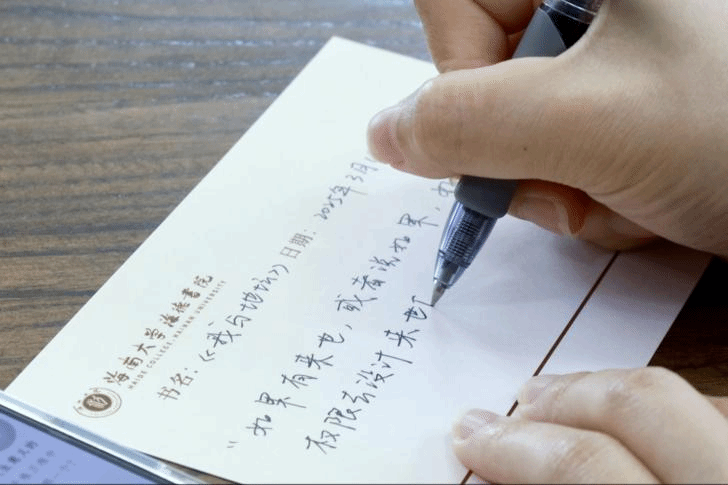 海南大学海德书院
HAIDE COLLEGE, HAINAN UNIVERSITY
书名：《我与地坛》日期：2025年3月
“如果有来世，或者说如果，
权限去设计来世